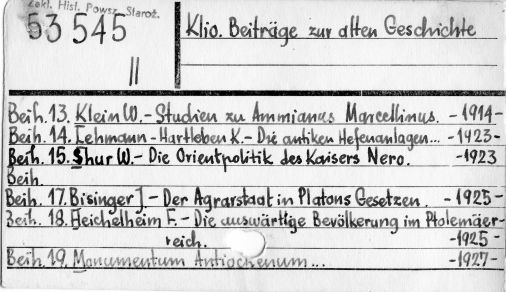 Zakl. Hist. Powsz. Staroż.
53 545
II
Klio. Beiträge zur alten Geschichte
Beih. 13. Klein W. - Studien zu Ammianus Marcellinus. - 1914 -
Beih. 14. Lehmann - Hartleben K. - Die antiken Hefenanlagen... - 1923 -
Beih. 15. Shur W. - Die Orientpolitik des Kaisers Nero. - 1923
Beih.
Beih. 17. Bisinger J. - Der Agrarstaat in Platons Gesetzen. - 1925 -
Beih. 18. Heichelheim F. - Die auswärtige Bevölkerung im Ptolemäer-
reich. - 1925 -
Beih. 19. Monumentum Antiochenum... - 1927 -